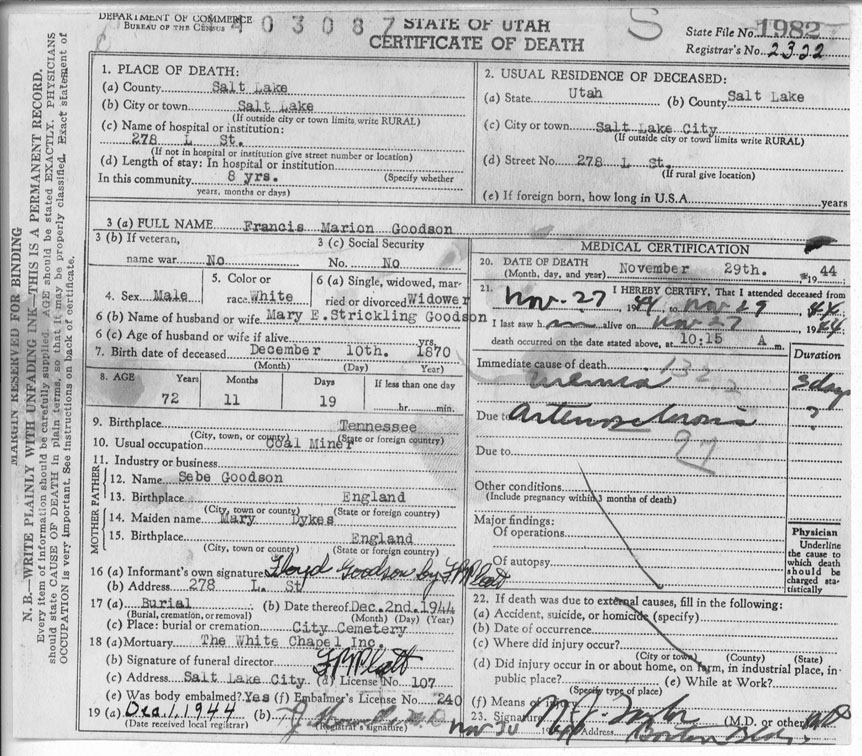 DEPARTMENT OF COMMERCE
BUREAU OF THE CENSUS
403087
STATE OF UTAH
CERTIFICATE OF DEATH
S
State File No. 1982
Registrar's No. 2322
MARGIN RESERVED FOR BINDING
N. B.—WRITE PLAINLY WITH UNFADING INK—THIS IS A PERMANENT RECORD.
Every item of information should be carefully supplied. AGE should be stated EXACTLY. PHYSICIANS
should state CAUSE OF DEATH in plain terms, so that it may be properly classified. Exact statement of
OCCUPATION is very important. See instructions on back of certificate.
1. PLACE OF DEATH:
(a) County Salt Lake
(b) City or town Salt Lake
(If outside city or town limits, write RURAL)
(c) Name of hospital or institution:
278 L St.
(If not in hospital or institution give street number or location)
(d) Length of stay: In hospital or institution
In this community 8 yrs. (Specify whether
years, months or days)
2. USUAL RESIDENCE OF DECEASED:
(a) State Utah (b) County Salt Lake
(c) City or town Salt Lake City
(If outside city or town limits write RURAL)
(d) Street No. 278 L St.
(If rural give location)
(e) If foreign born, how long in U.S.A. years
3 (a) FULL NAME Francis Marion Goodson
3 (b) If veteran,
name war No
3 (c) Social Security
No. No
4. Sex Male
5. Color or
race White
6 (a) Single, widowed, mar-
ried or divorced Widower
6 (b) Name of husband or wife Mary E. Strickling Goodson
6 (c) Age of husband or wife if alive yrs.
7. Birth date of deceased December 10th. 1870
(Month) (Day) Year)
8. AGE Years Months Days If less than one day
72 11 19 hr. min.
9. Birthplace Tennessee
(City, town, or county) (State or foreign country)
10. Usual occupation Coal Miner
11. Industry or business
FATHER
12. Name Sebe Goodson
13. Birthplace England
(City, town, or county) (State or foreign country)
MOTHER
14. Maiden name Mary Dykes
15. Birthplace England
(City, town, or county) (State or foreign country)
16 (a) Informant's own signature Floyd Goodson by F B Platt
(b) Address 278 L. St
17 (a) Burial (b) Date thereof Dec. 2nd. 1944
(Burial, cremation, or removal) (Month) (Day) (Year)
(c) Place: burial or cremation City Cemetery
18 (a) Mortuary The White Chapel Inc.
(b) Signature of funeral director F B Platt
(c) Address Salt Lake City (d) License No. 107
(e) Was body embalmed? Yes (f) Embalmer's License No. 240
19 (a) Dec. 1, 1944 (b)
(Date received local registrar) (Registrar's signature)
MEDICAL CERTIFICATION
20. DATE OF DEATH
(Month, day, and year) November 29th. 1944
21. I HEREBY CERTIFY, That I attended deceased from
Nov. 27 1944 to Nov 29 1944
I last saw h alive on Nov 27 1944
death occurred on the date stated above, at 10:15 A m.
Duration
Immediate cause of death 132
uremia 3 days
Due to Arteriosclerosis ?
97
Due to
Other conditions
(Include pregnancy within 3 months of death)
Major findings:
Of operations
Of autopsy
Physician
Underline
the cause to
which death
should be
charged sta-
tistically
22. If death was due to external causes, fill in the following:
(a) Accident, suicide, or homicide (specify)
(b) Date of occurrence
(c) Where did injury occur?
(City or town) (County) (State)
(d) Did injury occur in or about home, on farm, in industrial place, in
public place? (e) While at Work?
(Specify type of place)
(f) Means of injury
23. Signature (M.D. or other)
Nov 30 1944 Address Boston Bldg.